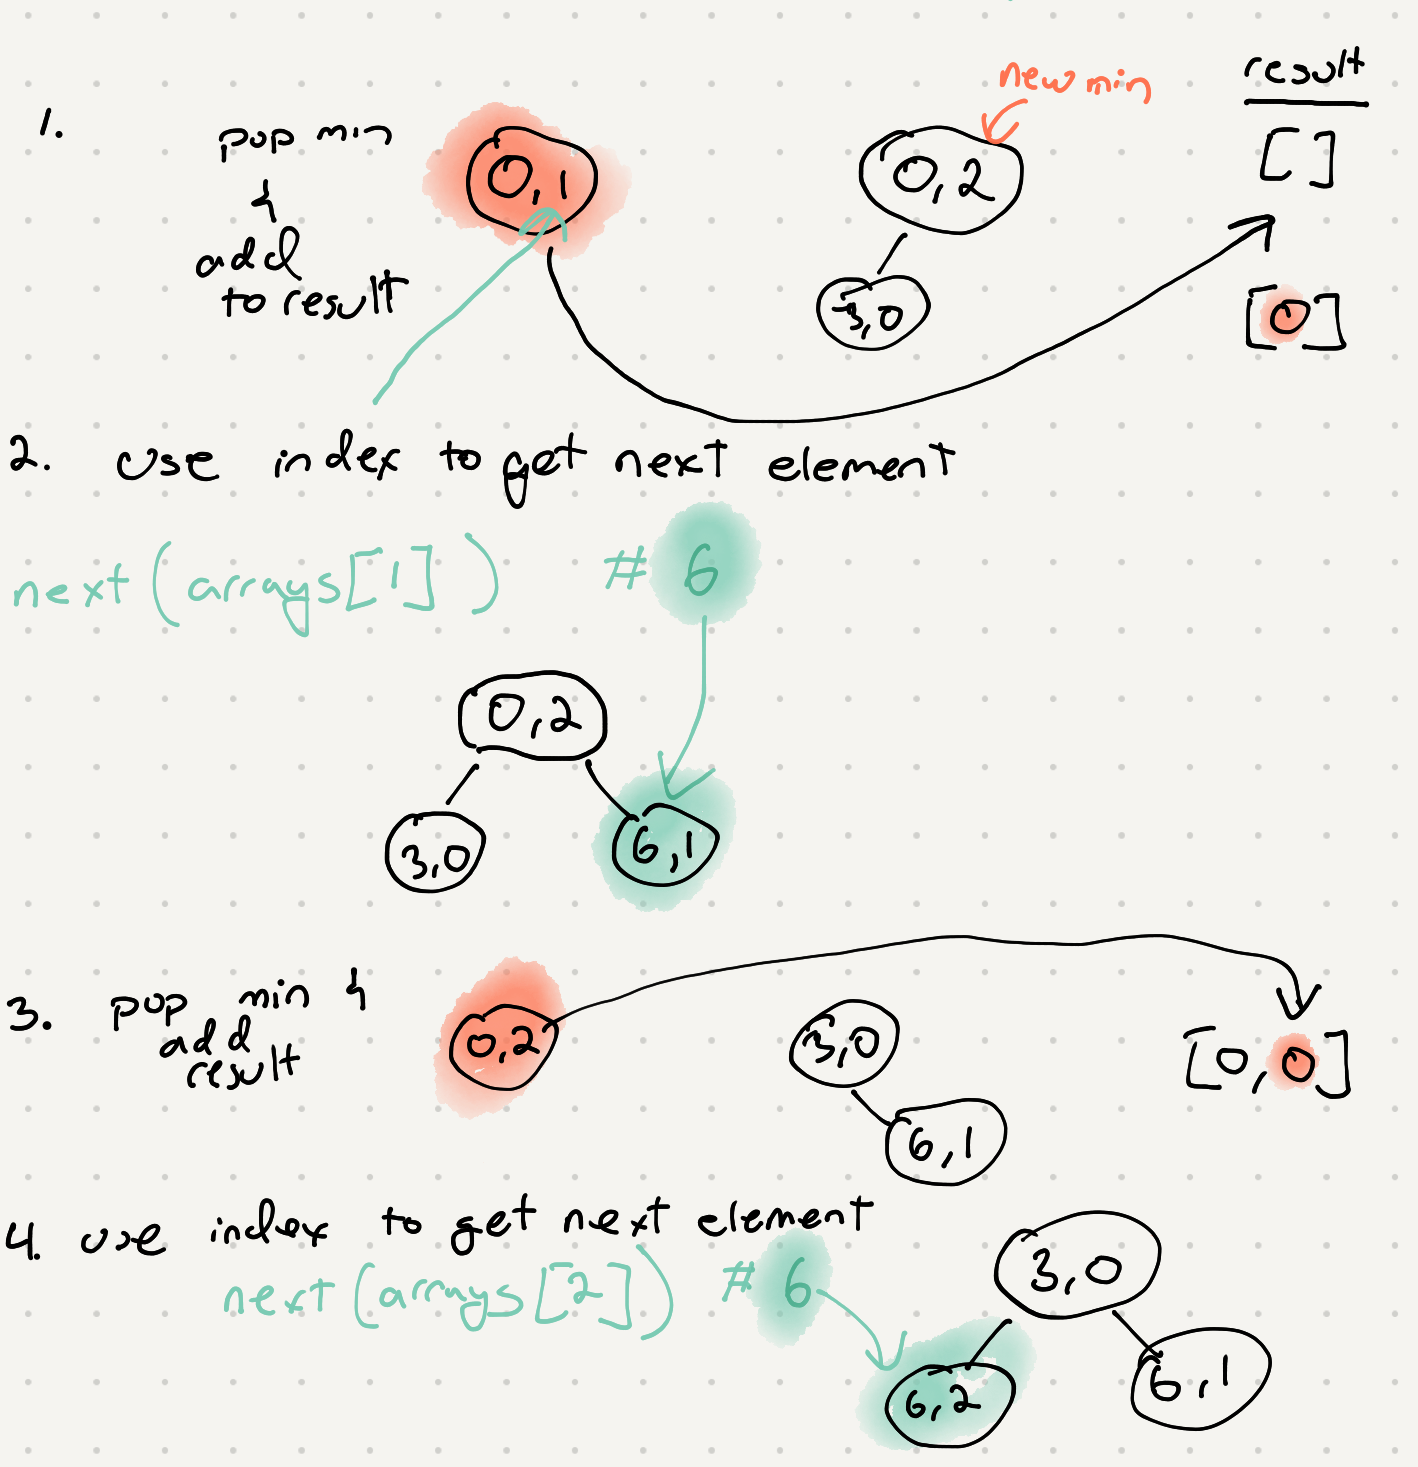 new min
result
1.
pop min
&
add
to result
0,1
0,2
3,0
[ ]
[0]
2. use index to get next element
next(arrays[1]) # 6
0,2
3,0
6,1
3. pop min &
add
result
0,2
3,0
6,1
[0,0]
4. use index to get next element
next(arrays[2]) # 6
3,0
6,2
6,1